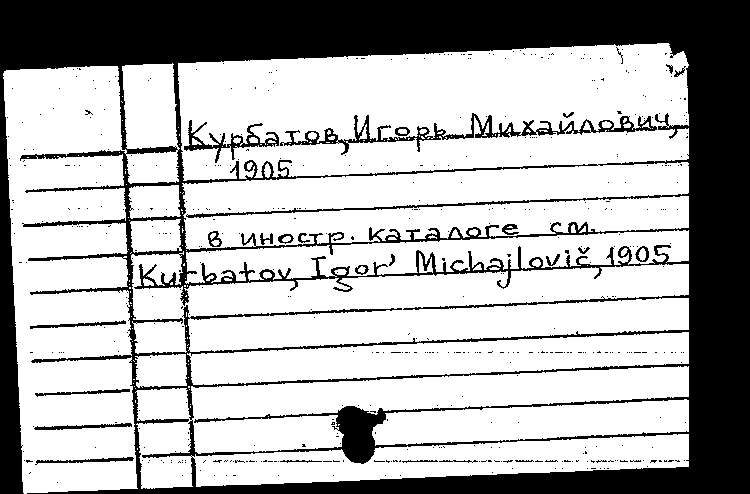 Курбатов, Игорь Михайлович,
1905
в иностр. каталоге см.
Kurbatov, Igor' Michajlovič, 1905